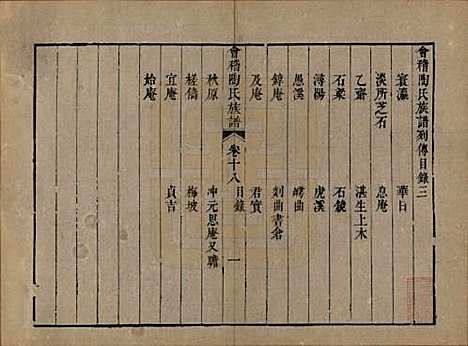 會稽陶氏族譜列傳目錄三
寰瀛 華日
淡所芝石 息庵
乙齋 湛生上木
石梁 石鏡
潯陽 虎溪
愚溪 嶀曲
鏡庵 剡曲書倉
及庵 君實
會稽陶氏族譜 卷十八 目錄 一
秋原 沖元思庵又聃
槎儔 梅坡
宜庵 貞吉
始庵